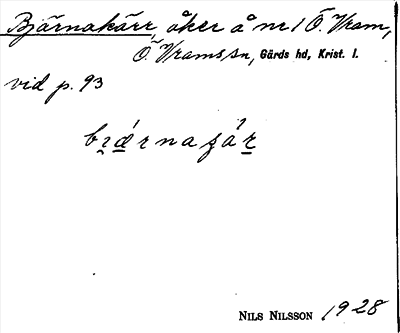 Björnakärr, åker å nr 1 Ö. Vram,
Ö. Vrams sn, Gärds hd, Krist. l.
vid p. 93
NILS NILSSON 1928